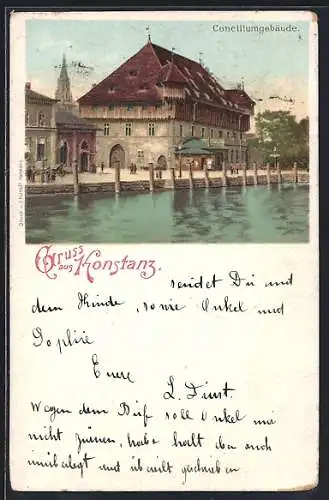 Conciliumgebäude.
Gruss
aus Konstanz.
sendet Dir und
dem Kinde, sowie Onkel und
Sophie
Euere
L. Dinst.
Wegen dem Brief soll Onkel mir
nicht zürnen, habe halt da auch
unüberlegt und übereilt geschrieben